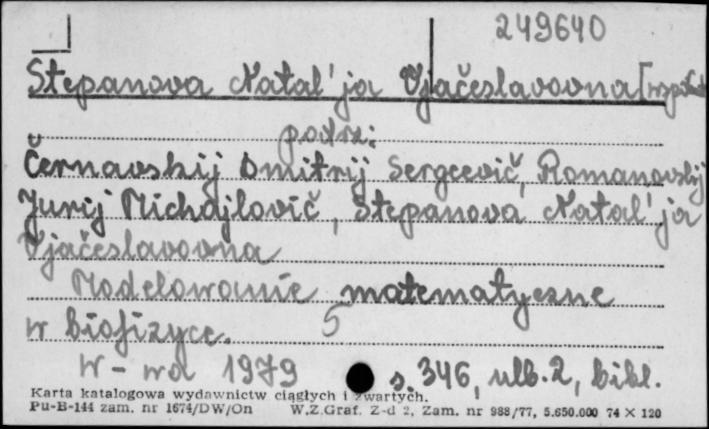 249640
Stepanova Natal'ja Vjačeslavovna [współaut.
podrz:
Černavskij Dmitrij Sergeevič, Romanovskij
Jurij Michajlovič, Stepanova Natal'ja
Vjačeslavovna
Modelowanie matematyczne
w biofizyce.
5
W-wa 1979 s. 346, ulb. 2, bibl.
Karta katalogowa wydawnictw ciągłych i zwartych.
Pu-B-144 zam. nr 1674/DW/On W.Z.Graf. Z-d 2, Zam. nr 988/77, 5.650.000 74 X 120